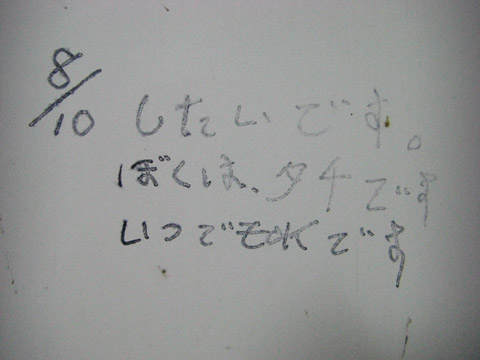 8/10 したいです。
ぼくは、タチです
いつでもOKです